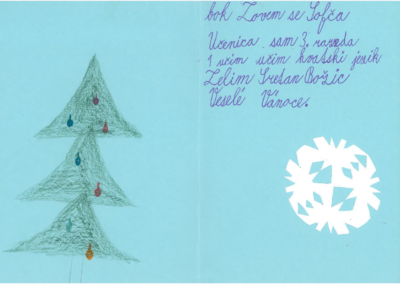 bok Zovem se Sofča
Učenica sam 3. razreda
I učim učim hrvatski jezik
Želim Sretan Božić
Veselé Vánoce.